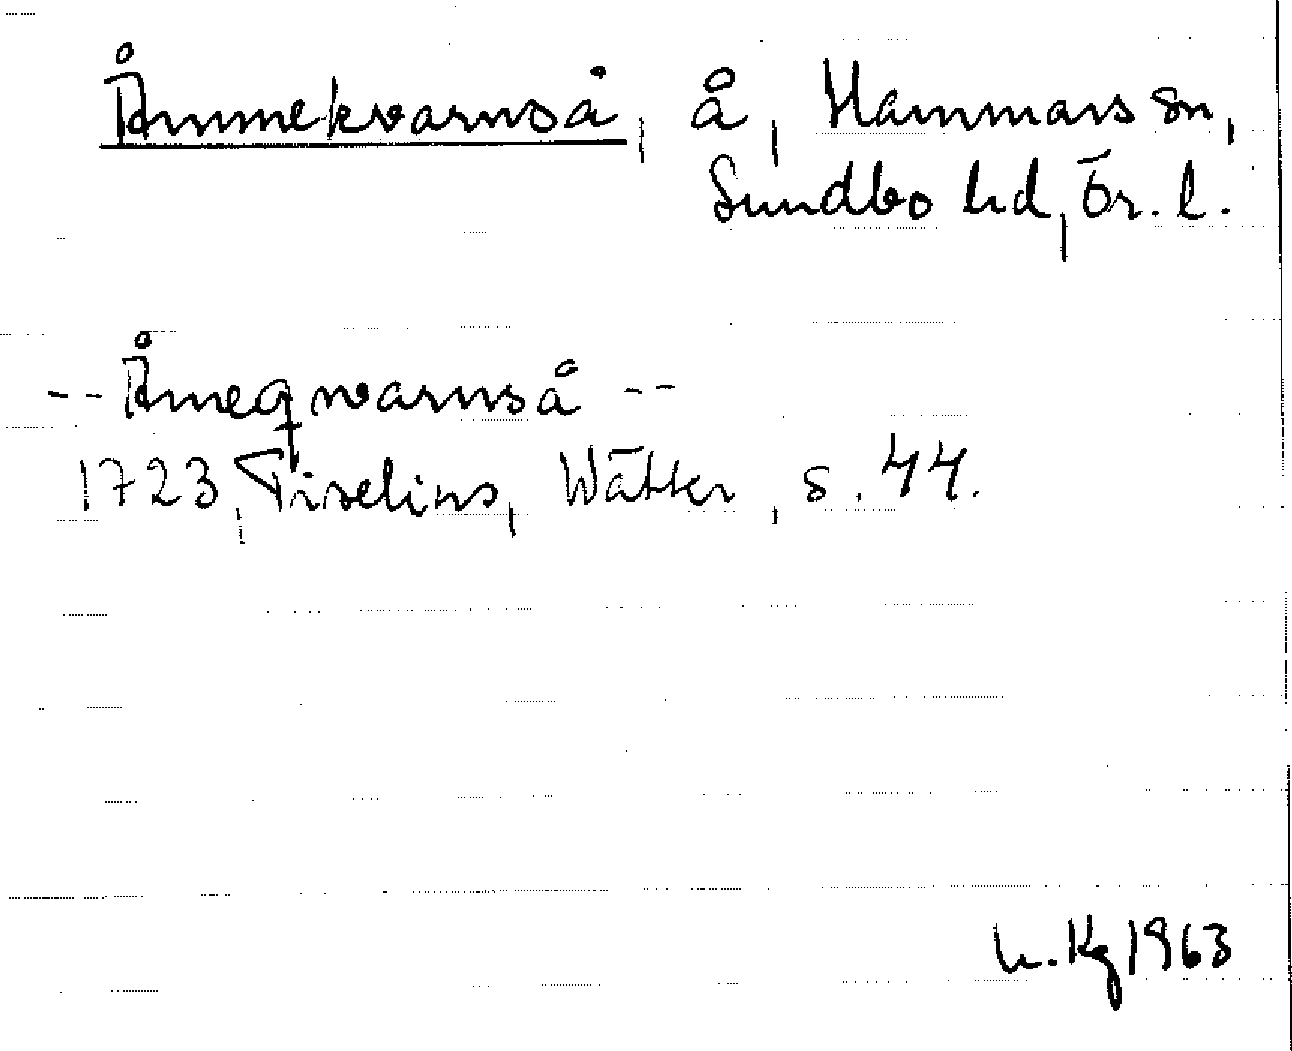 Åmmekvarnså, å, Hammars sn,
Sundbo hd, Ör. l.
-- Åmeqvarnså --
1723, Tiselius, Wätter, s. 44.
h. Kg 1963